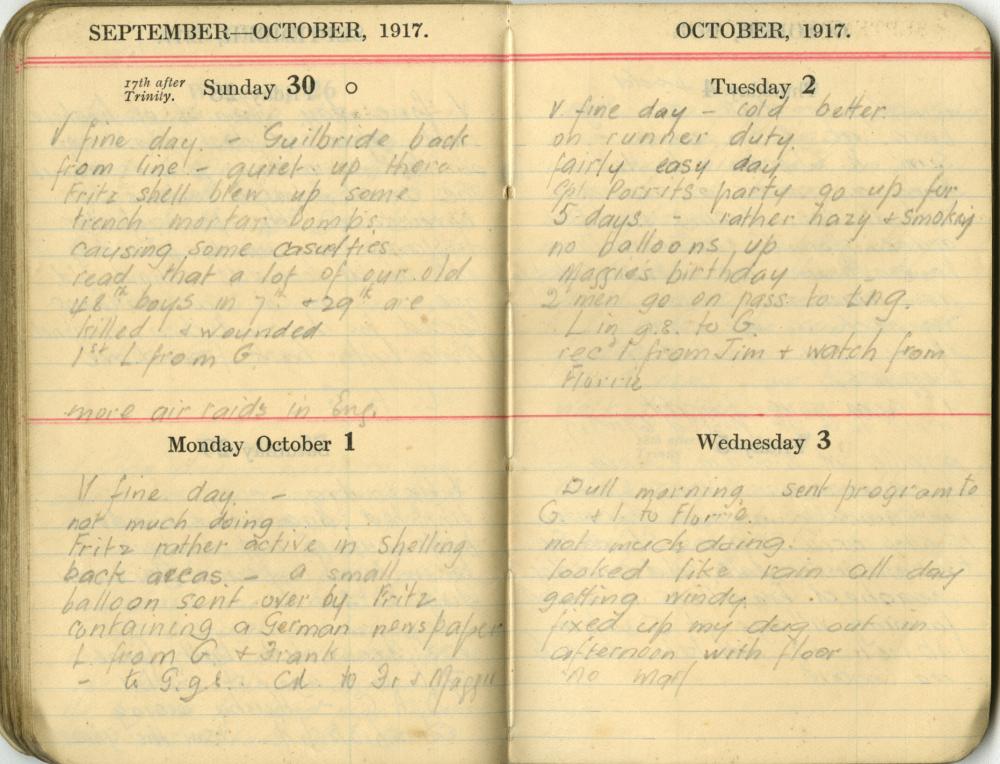 SEPTEMBER—OCTOBER, 1917.
17th after Trinity. Sunday 30 O
V fine day. - Guilbride back
from line - quiet up there
Fritz shell blew up some
trench mortar bombs,
causing some casulties
read that a lot of our old
48th boys in 7th + 29th are
killed + wounded
1st L from G
more air raids in Eng.
Monday October 1
V. fine day -
not much doing
Fritz rather active in shelling
back areas. - a small
balloon sent over by Fritz
containing a German newspaper
L. from G + Frank
- to G.g.s. Cd. to Fr + Maggie
OCTOBER, 1917.
Tuesday 2
V. fine day - cold better
on runner duty.
fairly easy day
Cpl Porrits party go up for
5 days - rather hazy + smoking
no balloons up
Maggie's birthday
2 men go on pass to Eng.
L in g.s. to G.
rec'd l. from Jim + watch from
Florrie
Wednesday 3
Dull morning sent program to
G. + l. to Florrie.
not much doing.
looked like rain all day
getting windy
fixed up my dug out in
afternoon with floor
no mail